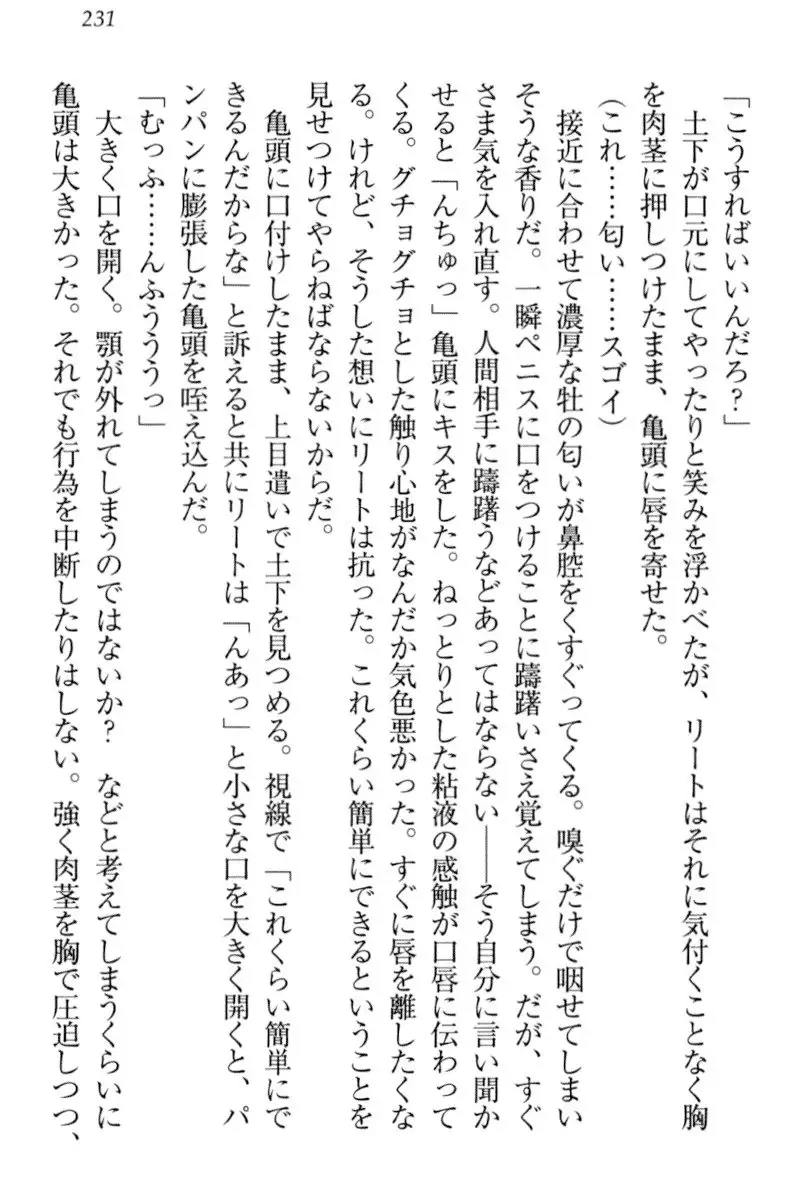 231
「こうすればいいんだろ？」
土下が口元にしてやったりと笑みを浮かべたが、リートはそれに気付くことなく胸
を肉茎に押しつけたまま、亀頭に唇を寄せた。
（これ……匂い……スゴイ）
接近に合わせて濃厚な牡の匂いが鼻腔をくすぐってくる。嗅ぐだけで咽せてしまい
そうな香りだ。一瞬ペニスに口をつけることに躊躇いさえ覚えてしまう。だが、すぐ
さま気を入れ直す。人間相手に躊躇うなどあってはならない――そう自分に言い聞か
せると「んちゅっ」亀頭にキスをした。ねっとりとした粘液の感触が口唇に伝わって
くる。グチョグチョとした触り心地がなんだか気色悪かった。すぐに唇を離したくな
る。けれど、そうした想いにリートは抗った。これくらい簡単にできるということを
見せつけてやらねばならないからだ。
亀頭に口付けしたまま、上目遣いで土下を見つめる。視線で「これくらい簡単にで
きるんだからな」と訴えると共にリートは「んあっ」と小さな口を大きく開くと、パ
ンパンに膨張した亀頭を咥え込んだ。
「むっふ……んふうううっ」
大きく口を開く。顎が外れてしまうのではないか？　などと考えてしまうくらいに
亀頭は大きかった。それでも行為を中断したりはしない。強く肉茎を胸で圧迫しつつ、